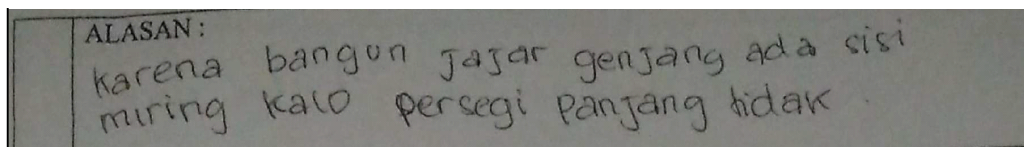 ALASAN:
karena bangun jajar genjang ada sisi
miring kalo persegi panjang tidak.